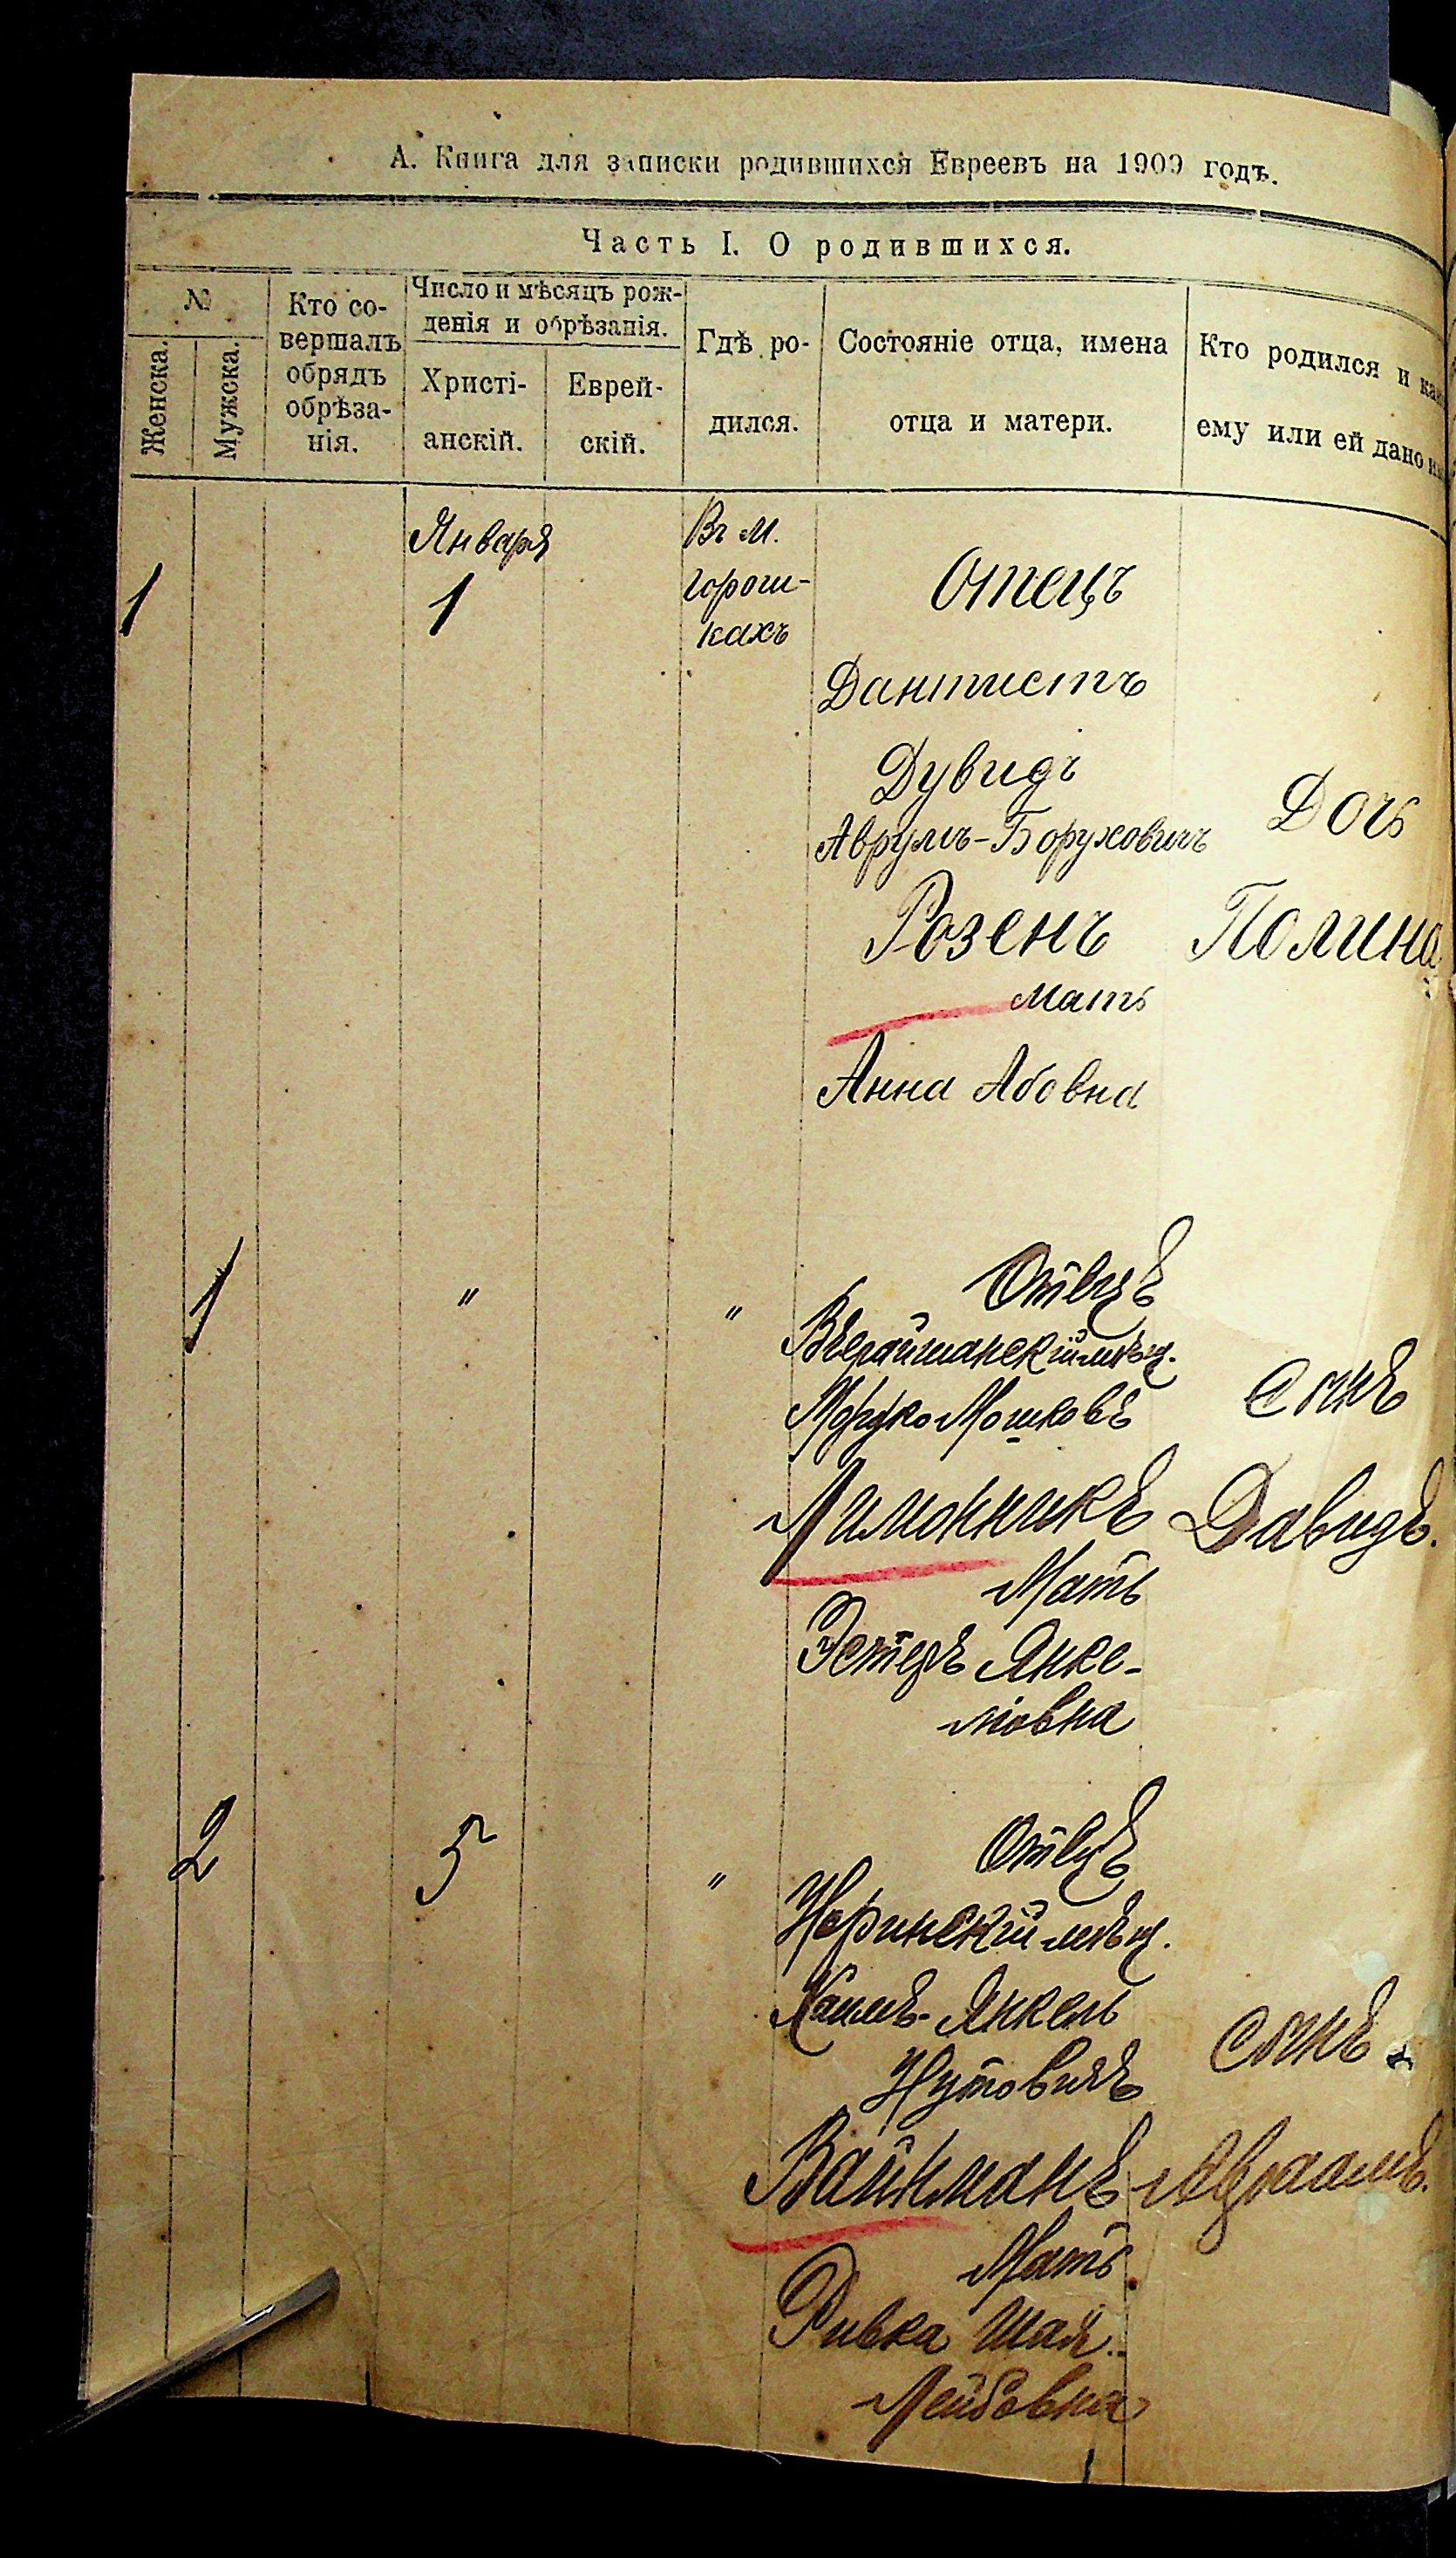 А. Книга для записки родившихся Евреевъ на 1909 годъ.
Часть I. О родившихся.
№
Женска.
Мужска.
Кто со-
вершалъ
обрядъ
обрѣза-
нія.
Число и мѣсяцъ рож-
денія и обрѣзанія.
Христі-
анскій.
Еврей-
скій.
Гдѣ ро-
дился.
Состояніе отца, имена
отца и матери.
Кто родился и как
ему или ей дано
1
Января
1
Въ м.
Горош-
кахъ
Отецъ
Дантистъ
Дувидъ
Аврумъ-Боруховичъ
Розенъ
Мать
Анна Абовна
Дочь
Полина
1
"
"
Отецъ
мѣщ.
Мошковъ
Лимонникъ
Мать
Эстеръ Янке-
ліовна
Сынъ
Давидъ.
2
5
"
Отецъ
Норинскій мѣщ.
Хаимъ-Янкель
Нутовичъ
Вайнманъ
Мать
Ривка Шая-
Лейбовна
Сынъ
Авраамъ.